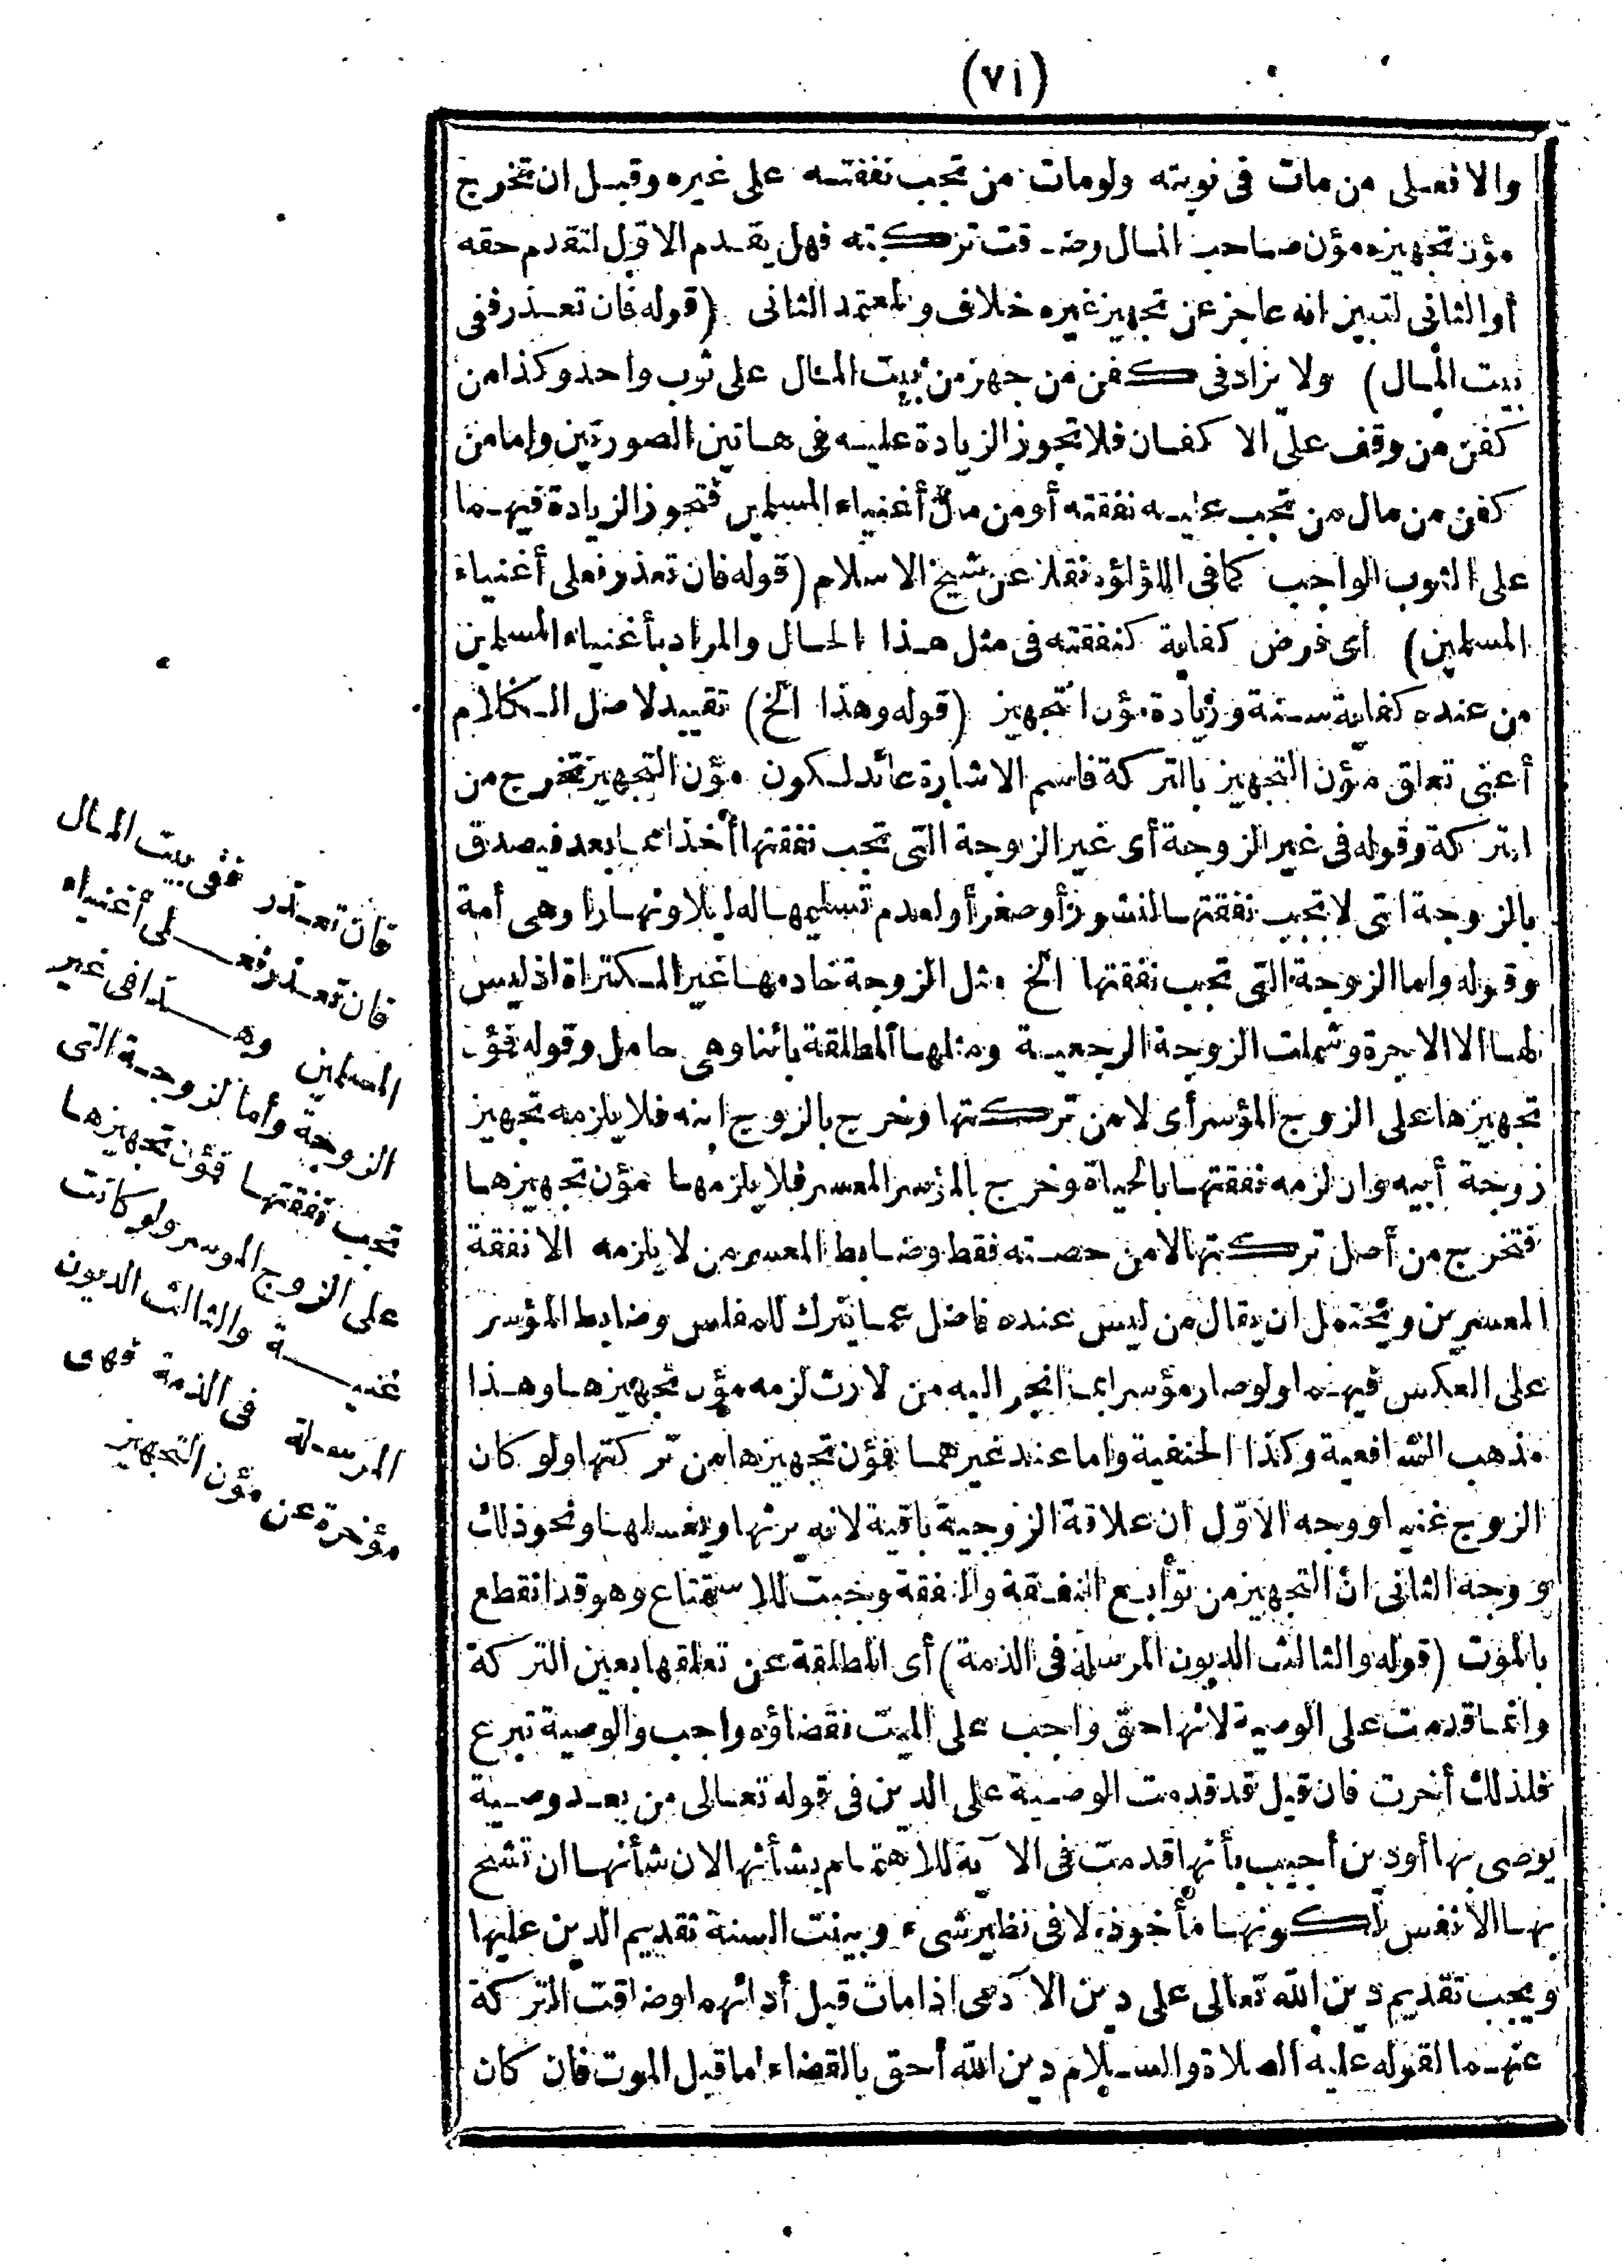 (٧١)
والا فعلى من مات فى نوبته ولومات من تجب نفقته على غيره وقبل ان تخرج
مؤن تجهيزه مؤن صاحب المال وضاقت تركته فهل يقدم الاول لتقدم حقه
أوالثانى لتبين انه عاجز عن تجهيز غيره خلاف والمعتمد الثانى (قوله فان تعذر ففى
بيت المال) ولا يزاد فى كفن من جهز من بيت المال على ثوب واحد وكذا من
كفن من وقف على الاكفان فلا تجوز الزيادة عليه فى هاتين الصورتين واما من
كفن من مال من تجب عليه نفقته أو من مال أغنياء المسلمين فتجوز الزيادة فيهما
على الثوب الواجب كما فى اللؤلؤه نقلا عن شيخ الاسلام (قوله فان تعذر فعلى أغنياء
المسلمين) أى فرض كفاية كنفقته فى مثل هذا الحال والمراد بأغنياء المسلمين
من عنده كفاية سنة وزيادة مؤن التجهيز (قوله وهذا الخ) تقييد لاصل الكلام
أعنى تعلق مؤن التجهيز بالتركة فاسم الاشارة عائد لكون مؤن التجهيز تخرج من
التركة وقوله فى غير الزوجة أى غير الزوجة التى تجب نفقتها أخذا مما بعد فيصدق
بالزوجة التى لا تجب نفقتها لنشوز أو صغر أو لعدم تسليمها له ليلا ونهارا وهى أمة
وقوله واما الزوجة التى تجب نفقتها الخ مثل الزوجة خادمها غير المكتراة اذ ليس
لها الا الاجرة وشملت الزوجة الرجعية ومثلها المطلقة بائنا وهى حامل وقوله فمؤن
تجهيزها على الزوج المؤسر أى لا من تركتها وخرج بالزوج ابنه فلا يلزمه تجهيز
زوجة أبيه وان لزمه نفقتها بالحياة وخرج بالمؤسر المعسر فلا يلزمها مؤن تجهيزها
فتخرج من أصل تركتها لا من حصته فقط وضابط المعسر من لا يلزمه الا نفقة
المعسرين ويحتمل ان يقال من ليس عنده فاضل عما يترك للمفلس وضابط المؤسر
على العكس فيهما ولو صار مؤسرا بما انجر اليه من الارث لزمه مؤن تجهيزها وهذا
مذهب الشافعية وكذا الحنفية واما عند غيرهما فمؤن تجهيزها من تركتها ولو كان
الزوج غنيا ووجه الاول ان علاقة الزوجية باقية لانه يرثها ويغسلها ونحو ذلك
ووجه الثانى ان التجهيز من توابع النفقة والنفقة وجبت للاستمتاع وهو قد انقطع
بالموت (قوله والثالث الديون المرسلة فى الذمة) أى المطلقة عن تعلقها بعين التركة
وانما قدمت على الوصية لانها حق واجب على الميت فقضاؤه واجب والوصية تبرع
فلذلك أخرت فان قيل قد قدمت الوصية على الدين فى قوله تعالى من بعد وصية
يوصى بها أو دين أجيب بأنها قدمت فى الآية للاهتمام بشأنها لان شأنها ان تشح
بها الانفس لكونها مأخوذه لا فى نظير شىء وبينت السنة تقديم الدين عليها
ويجب تقديم دين الله تعالى على دين الآدمى اذا مات قبل أدائهما وضاقت التركة
عنهما لقوله عليه الصلاة والسلام دين الله أحق بالقضاء اما قبل الموت فان كان
فان تعذر ففى بيت المال
فان تعذر فعلى أغنياء
المسلمين وهذا فى غير
الزوجة وأما الزوجة التى
تجب نفقتها فمؤن تجهيزها
على الزوج الموسر ولو كانت
غنية والثالث الديون
المرسلة فى الذمة فهى
مؤخرة عن مؤن التجهيز